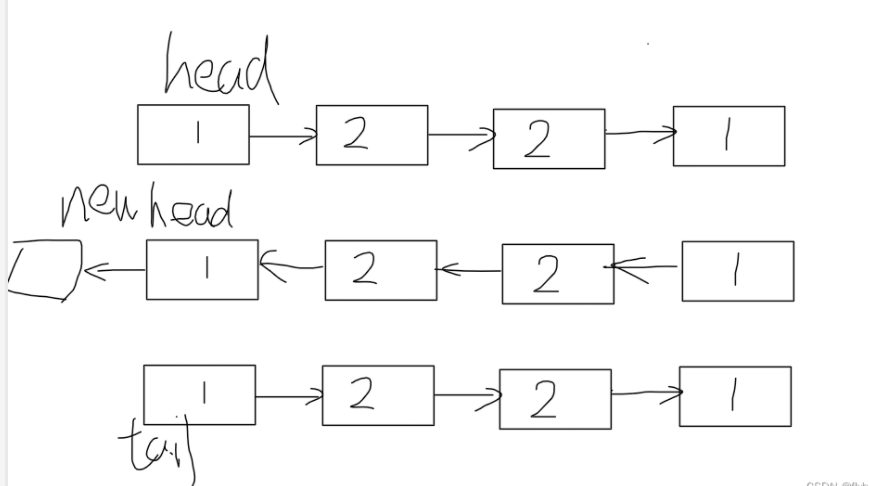 head
1 2 2 1
newhead
1 2 2 1
1 2 2 1
tail